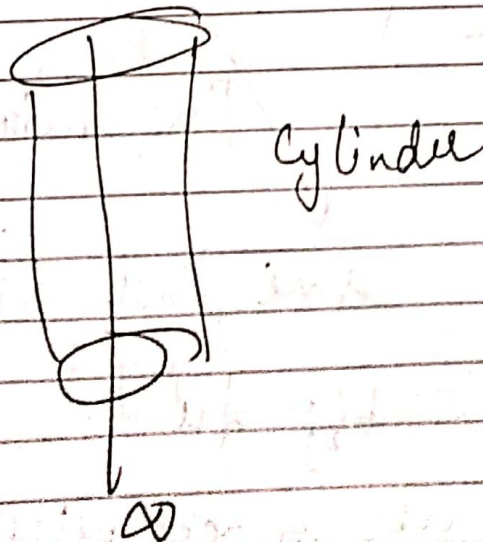 Cylinder
∞